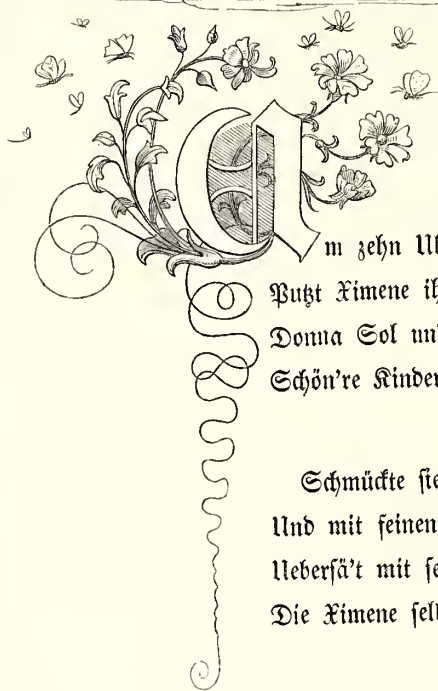 Am zehn
Putzt Ximene
Donna Sol
Schön're Kinder
Schmückte
Und mit feinen
Uebersä't mit
Die Ximene